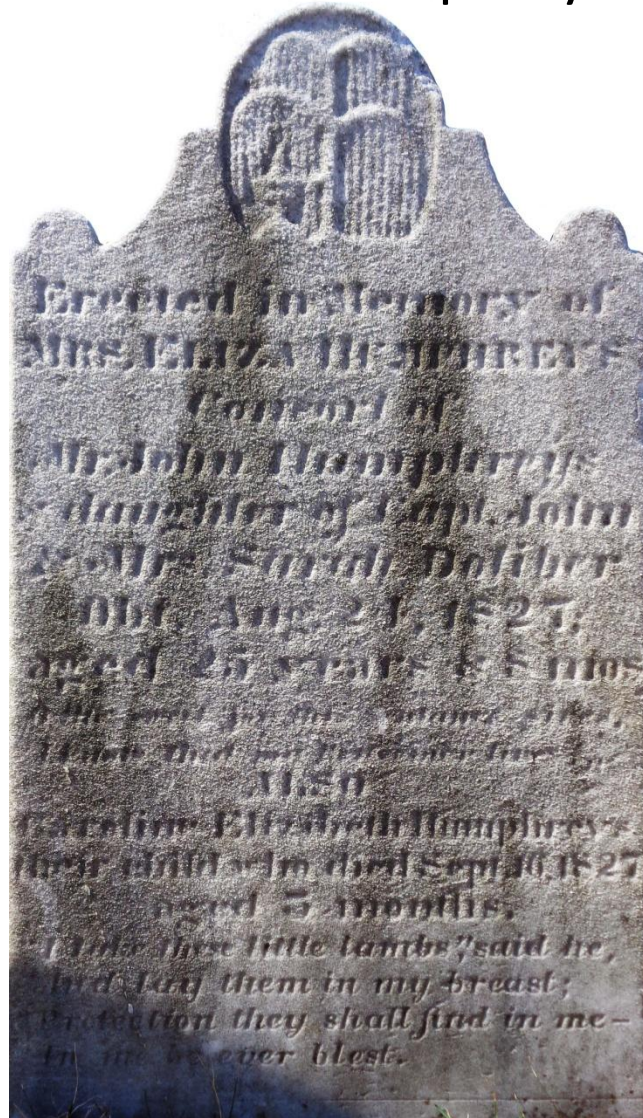 Erected in Memory of
MRS. ELIZA HUMPHREYS
Consort of
Mr. John Humphreys
& daughter of Capt. John
& Mrs. Sarah Doliber
Obt. Aug. 21, 1827,
aged 25 years & 8 mos
ALSO
Caroline Elizabeth Humphreys
their child who died Sept. 16, 1827
aged 5 months.
"I take these little lambs," said he,
"And lay them in my breast;
Protection they shall find in me—
In me be ever blest.